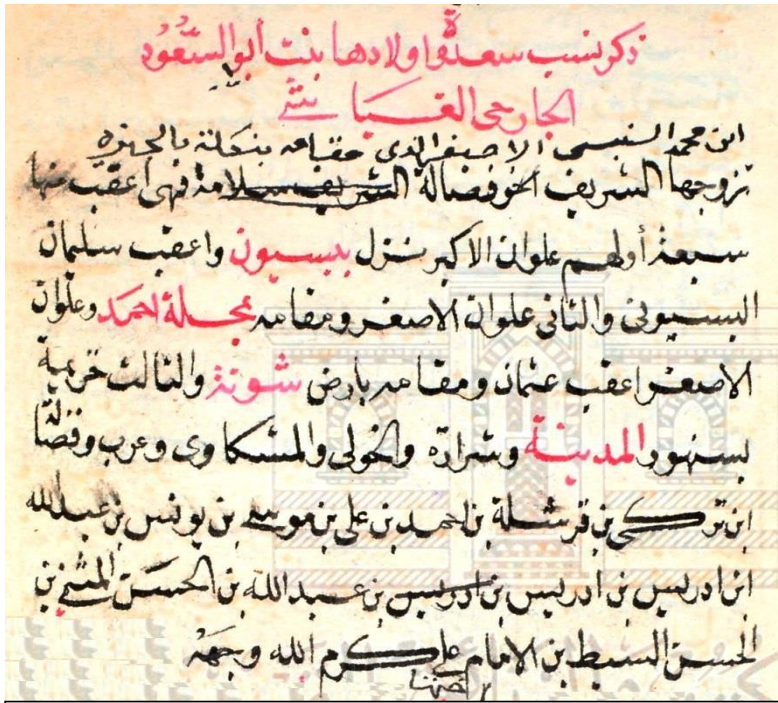 ذكر نسب سعدة واولادها بنت أبو السعود
الجارحى الغباشى
ابن محمد السنبسى الاصغر الذى مقامه بنخلة بالجيزه
تزوجها الشريف اخو فضالة الشريف سلامة فهى اعقب منها
سبعة أولهم علوان الاكبر نزل ببسيون واعقب سليمان
البسيونى والثانى علوان الاصغر ومقامه بمحلة احمد وعلوان
الاصغر اعقب عثمان ومقامه بارض شونة والثالث
بسنهور المدينة وشرارة والخولى والمشكاوى وعرب وفضالة
ابن تركى بن قرشلة بن احمد بن على بن موسى بن يونس بن عبد الله
ابن ادريس بن ادريس بن ادريس بن عبد الله بن الحسن المثنى بن
الحسن السبط بن الامام على كرم الله وجهه